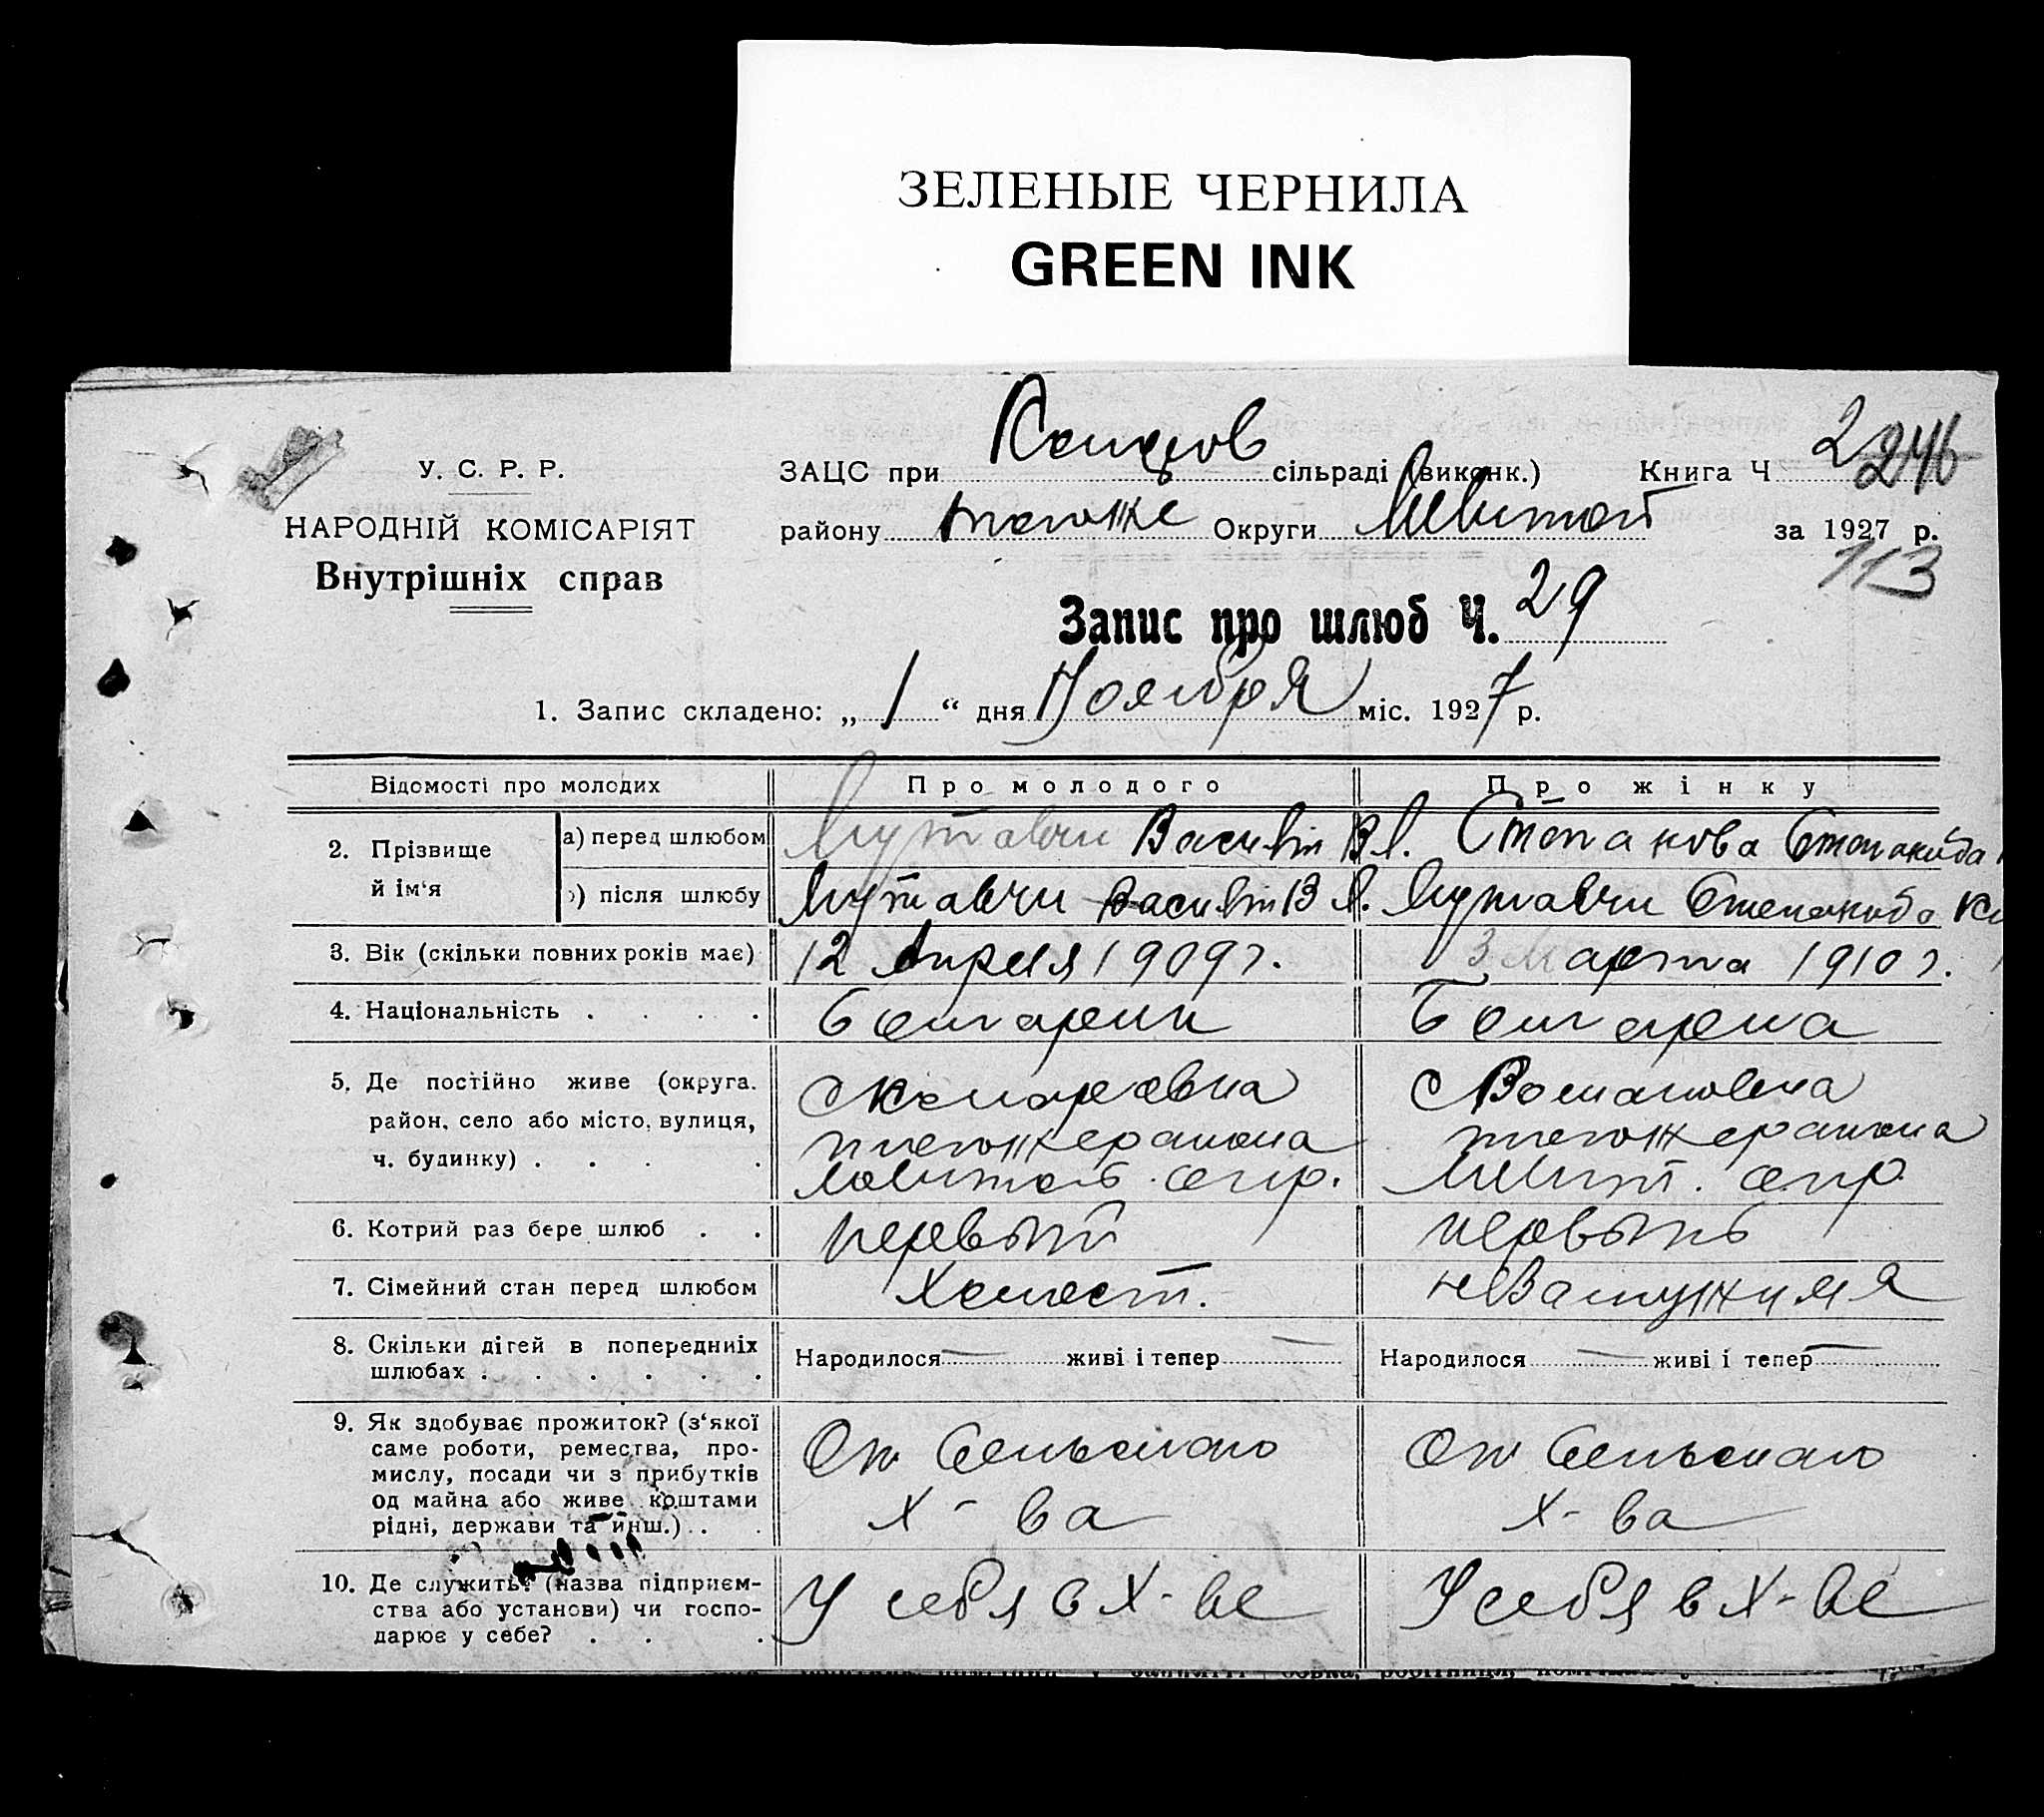 ЗЕЛЕНЫЕ ЧЕРНИЛА
GREEN INK
У. С. Р. Р.
НАРОДНІЙ КОМІСАРІЯТ
Внутрішніх справ
ЗАЦС при сільраді (виконк.) Книга Ч 2 246
району тогоже Округи за 1927 р.
113
Запис про шлюб Ч. 29
1. Запис складено: „ 1 “ дня Ноября міс. 1927 р.
Відомості про молодих Про молодого Про жінку
2. Прізвище й ім‘я
а) перед шлюбом Мутавчи Василий Вл. Степанова Степанида
) після шлюбу Мутавчи Василий Вл. Мутавчи Степанида
3. Вік (скільки повних років має) 12 Апреля 1909 г. 3 Марта 1910 г.
4. Національність . . . . Болгарин Болгарка
5. Де постійно живе (округа. район, село або місто, вулиця, ч. будинку) . . . .
тогоже района тогоже района
окр. окр.
6. Котрий раз бере шлюб . . первый первый
7. Сімейний стан перед шлюбом Холост. незамужняя
8. Скільки дітей в попередниіх шлюбах . . . . . .
Народилося — живі і тепер — Народилося — живі і тепер —
9. Як здобуває прожиток? (з‘якої саме роботи, ремества, про-
мислу, посади чи з прибутків
од майна або живе коштами
рідні, держави та инш.) . .
От Сельского От Сельского
х-ва х-ва
10. Де служить? (назва підприєм-
ства або установи) чи госпо-
дарює у себе? . . .
У себя в х-ве У себя в х-ве